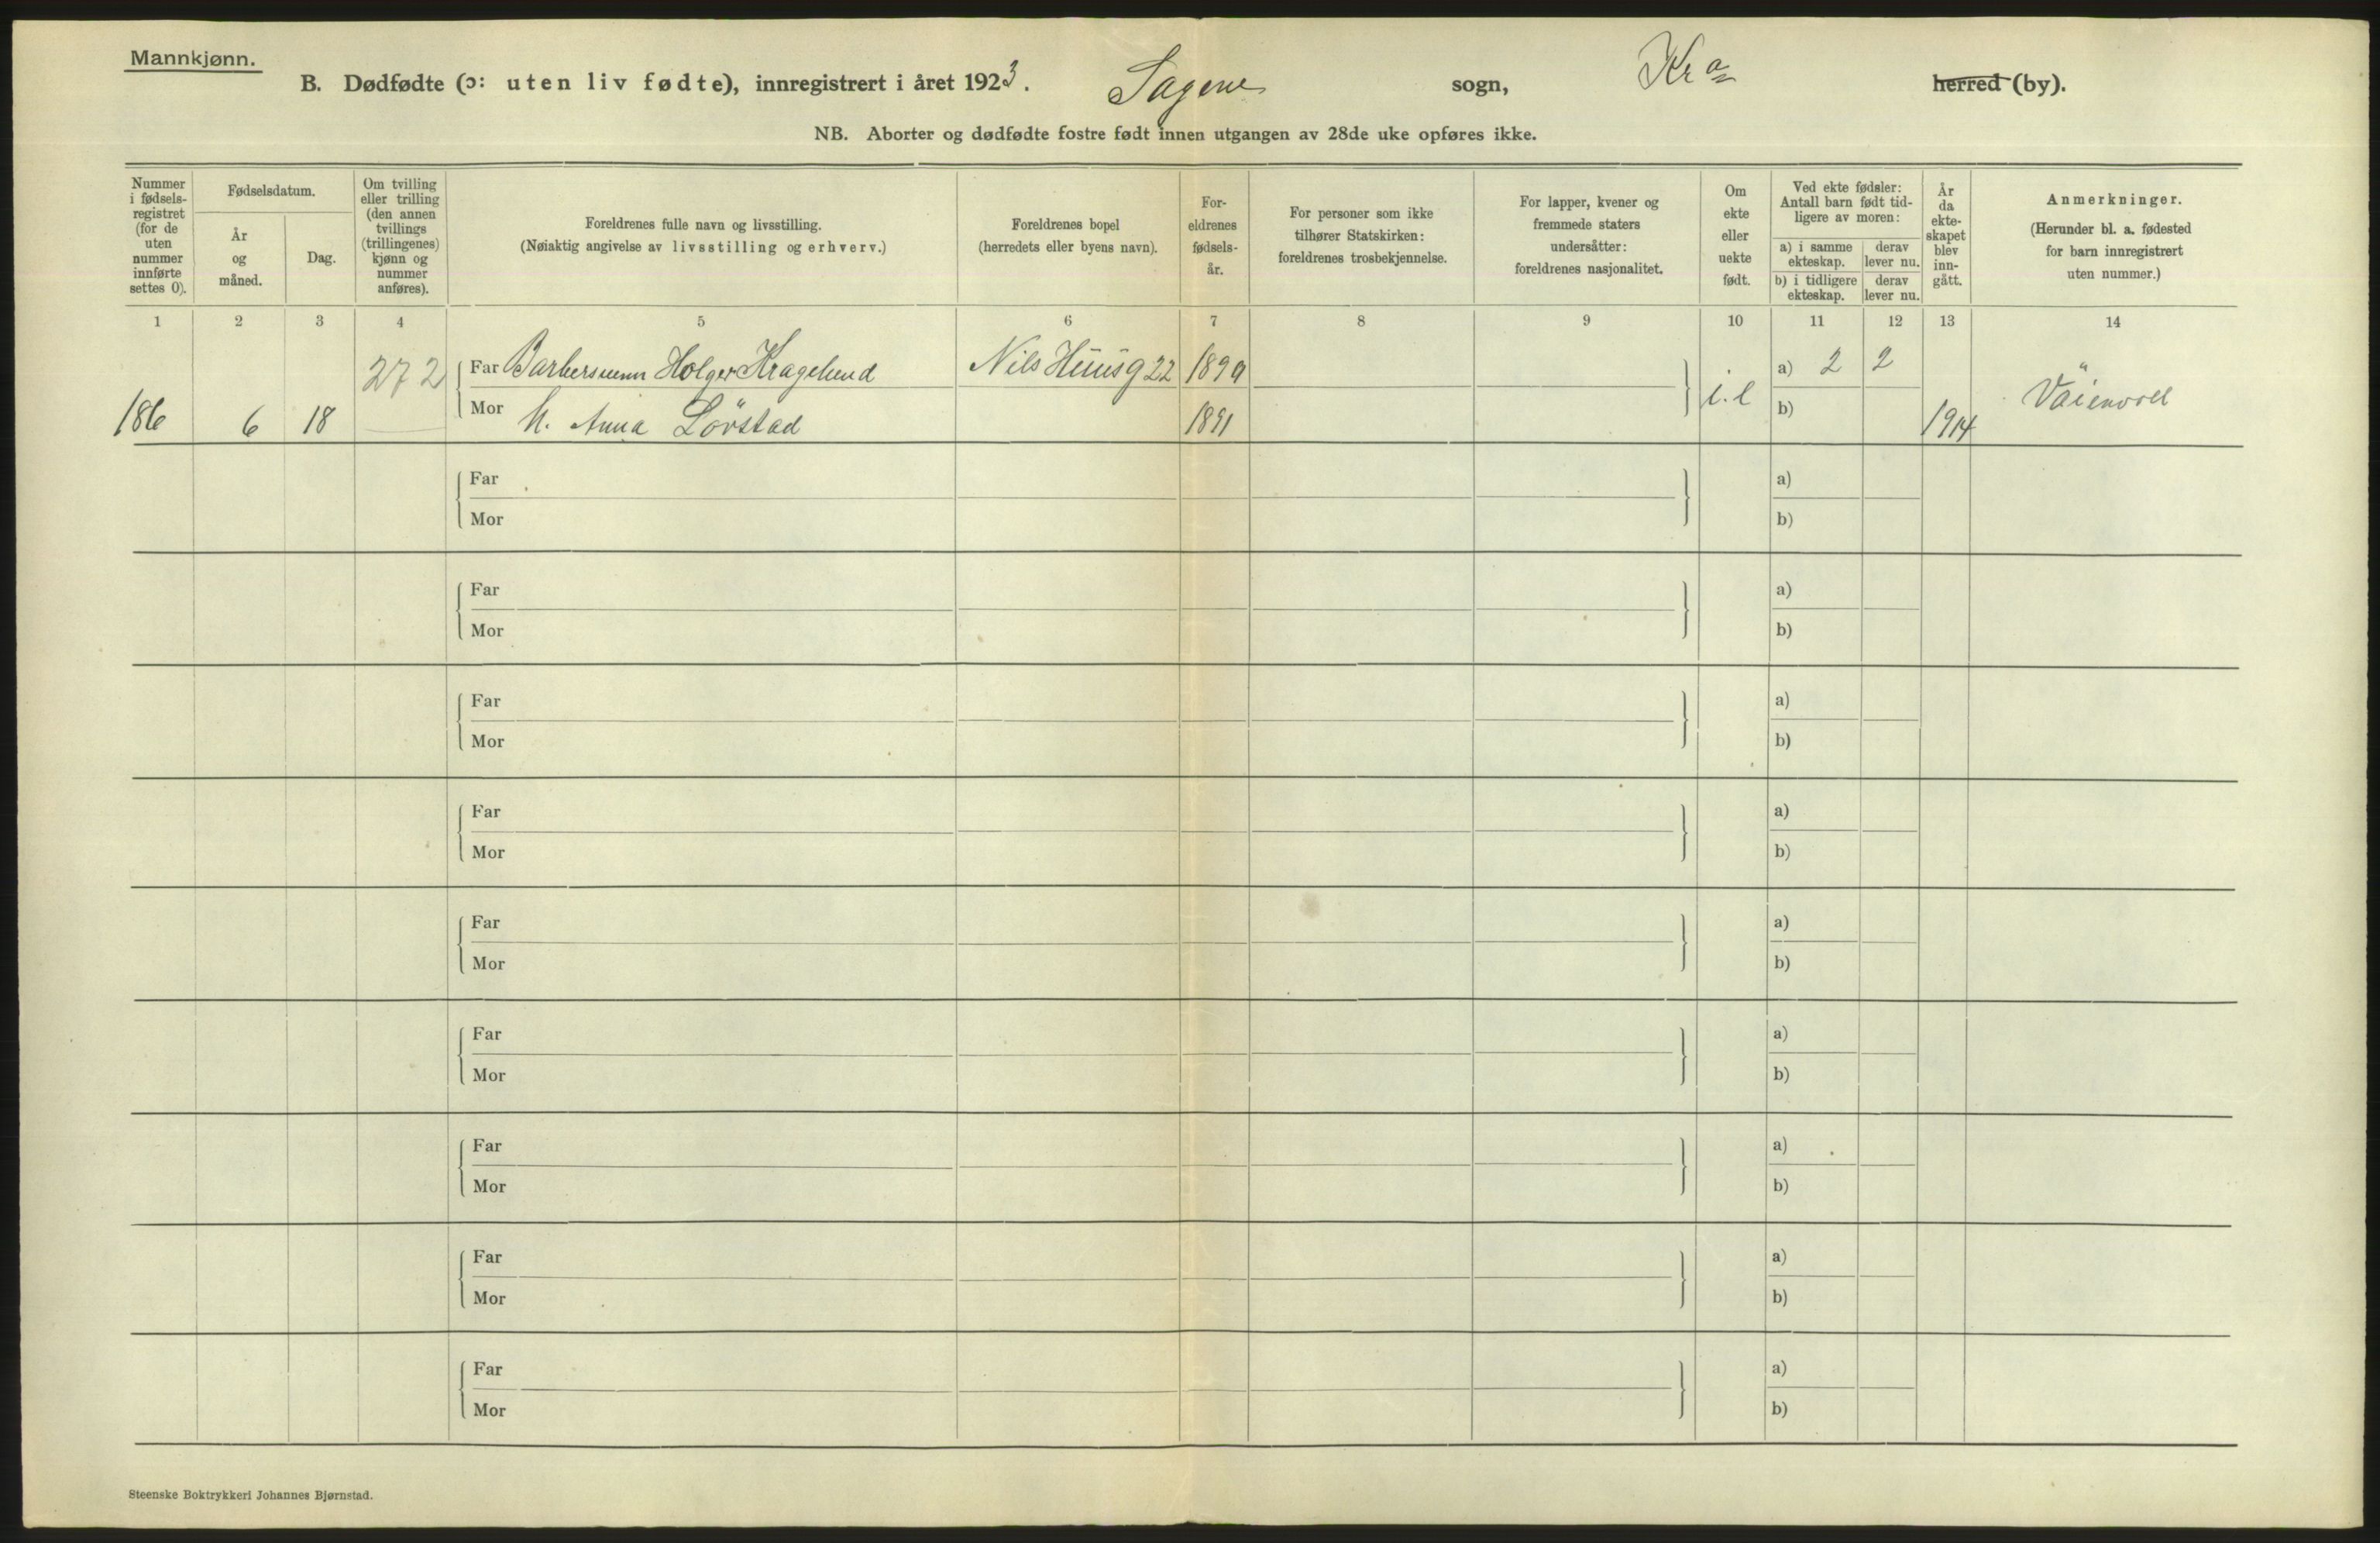 Mannkjønn.
B. Dødfødte (ɔ: uten liv fødte), innregistrert i året 1923. Sagene sogn, Kra herred (by).
NB. Aborter og dødfødte fostre født innen utgangen av 28de uke opføres ikke.
Nummer
i fødsels-
registret
(for de
uten
nummer
innførte
settes 0).
Fødselsdatum.
År
og
måned.
Dag.
Om tvilling
eller trilling
(den annen
tvillings
(trillingenes)
kjønn og
nummer
anføres).
Foreldrenes fulle navn og livsstilling.
(Nøiaktig angivelse av livsstilling og erhverv.)
Foreldrenes bopel
(herredets eller byens navn).
For-
eldrenes
fødsels-
år.
For personer som ikke
tilhører Statskirken:
foreldrenes trosbekjennelse.
For lapper, kvener og
fremmede staters
undersåtter:
foreldrenes nasjonalitet.
Om
ekte
eller
uekte
født.
Ved ekte fødsler:
Antall barn født tid-
ligere av moren:
a) i samme
ekteskap.
derav
lever nu.
b) i tidligere
ekteskap.
derav
lever nu.
År
da
ekte-
skapet
blev
inn-
gått.
Anmerkninger.
(Herunder bl. a. fødested
for barn innregistrert
uten nummer.)
1 2 3 4 5 6 7 8 9 10 11 12 13 14
272 Far Barbersvenn Holger Kragelund Nils Huusg 22 1890 a) 2 2
186 6 18 Mor h. Anna Lövstad 1891 i.e b) 1914
Far a)
Mor b)
Far a)
Mor b)
Far a)
Mor b)
Far a)
Mor b)
Far a)
Mor b)
Far a)
Mor b)
Far a)
Mor b)
Far a)
Mor b)
Far a)
Mor b)
Steenske Boktrykkeri Johannes Bjørnstad.